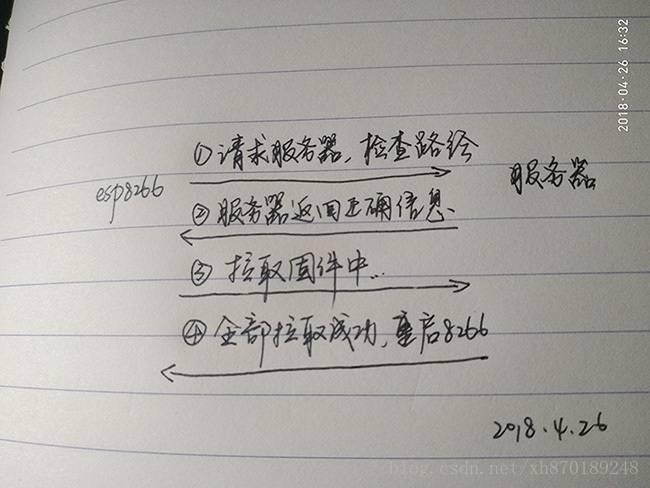 2018-04-26 16:32
①请求服务器,检查路径
esp8266
服务器
②服务器返回正确信息.
③ 拉取固件中...
④全部拉取成功,重启8266
2018.4.26
blog.csdn.net/xh870189248